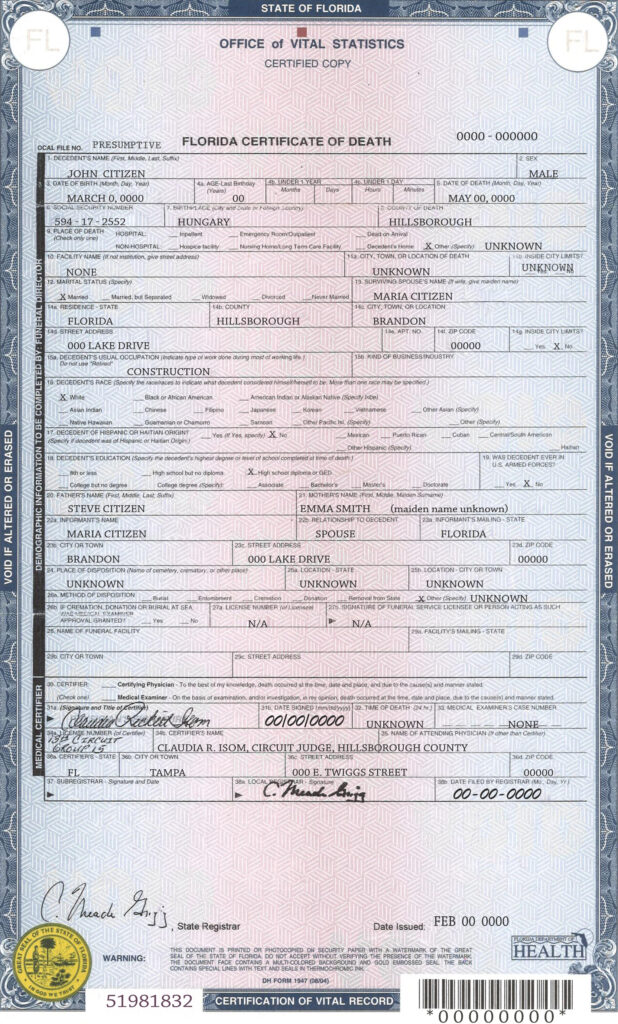 STATE OF FLORIDA
FL
FL
OFFICE of VITAL STATISTICS
CERTIFIED COPY
0000 - 000000
OCAL FILE NO. PRESUMPTIVE FLORIDA CERTIFICATE OF DEATH
1. DECEDENT'S NAME (First, Middle, Last, Suffix) 2. SEX
JOHN CITIZEN MALE
3. DATE OF BIRTH (Month, Day, Year) 4a. AGE-Last Birthday (Years) 4b. UNDER 1 YEAR Months Days 4c. UNDER 1 DAY Hours Minutes 5. DATE OF DEATH (Month, Day, Year)
MARCH 0, 0000 00 MAY 00, 0000
6. SOCIAL SECURITY NUMBER 7. BIRTHPLACE (City and State or Foreign Country) COUNTY OF DEATH
594 - 17 - 2552 HUNGARY HILLSBOROUGH
9. PLACE OF DEATH (Check only one) HOSPITAL: Inpatient Emergency Room/Outpatient Dead on Arrival
NON-HOSPITAL: Hospice facility Nursing Home/Long Term Care Facility Decedent's Home X Other (Specify) UNKNOWN
10. FACILITY NAME (If not institution, give street address) 11a. CITY, TOWN, OR LOCATION OF DEATH 11b. INSIDE CITY LIMITS?
NONE UNKNOWN UNKNOWN
12. MARITAL STATUS (Specify) 13. SURVIVING SPOUSE'S NAME (If wife, give maiden name)
X Married Married, but Separated Widowed Divorced Never Married MARIA CITIZEN
14a. RESIDENCE - STATE 14b. COUNTY 14c. CITY, TOWN, OR LOCATION
FLORIDA HILLSBOROUGH BRANDON
14d. STREET ADDRESS APT. NO. 14f. ZIP CODE 14g. INSIDE CITY LIMITS?
000 LAKE DRIVE 00000 Yes X No
15a. DECEDENT'S USUAL OCCUPATION (Indicate type of work done during most of working life.) 15b. KIND OF BUSINESS/INDUSTRY
Do not use "Retired"
CONSTRUCTION
16. DECEDENT'S RACE (Specify the race/races to indicate what decedent considered himself/herself to be. More than one race may be specified.)
X White Black or African American American Indian or Alaskan Native (Specify tribe)
Asian Indian Chinese Filipino Japanese Korean Vietnamese Other Asian (Specify)
Native Hawaiian Guamanian or Chamorro Samoan Other Pacific Isl. (Specify) Other (Specify)
17. DECEDENT OF HISPANIC OR HAITIAN ORIGIN? Yes (If Yes, specify) X No Mexican Puerto Rican Cuban Central/South American
(Specify if decedent was of Hispanic or Haitian Origin.) Other Hispanic (Specify) Haitian
18. DECEDENT'S EDUCATION (Specify the decedent's highest degree or level of school completed at time of death.) 19. WAS DECEDENT EVER IN U.S. ARMED FORCES?
8th or less High school but no diploma X High school diploma or GED
College but no degree College degree (Specify): Associate Bachelor's Master's Doctorate Yes X No
20. FATHER'S NAME (First, Middle, Last, Suffix) 21. MOTHER'S NAME (First, Middle, Maiden Surname)
STEVE CITIZEN EMMA SMITH (maiden name unknown)
22a. INFORMANT'S NAME 22b. RELATIONSHIP TO DECEDENT 23a. INFORMANT'S MAILING - STATE
MARIA CITIZEN SPOUSE FLORIDA
23b. CITY OR TOWN 23c. STREET ADDRESS 23d. ZIP CODE
BRANDON 000 LAKE DRIVE 00000
24. PLACE OF DISPOSITION (Name of cemetery, crematory, or other place) 25a. LOCATION - STATE 25b. LOCATION - CITY OR TOWN
UNKNOWN UNKNOWN UNKNOWN
26a. METHOD OF DISPOSITION Burial Entombment Cremation Donation Removal from State X Other (Specify) UNKNOWN
26b. IF CREMATION, DONATION OR BURIAL AT SEA, WAS MEDICAL EXAMINER APPROVAL GRANTED? Yes No 27a. LICENSE NUMBER (of Licensee) 27b. SIGNATURE OF FUNERAL SERVICE LICENSEE OR PERSON ACTING AS SUCH
N/A N/A
28. NAME OF FUNERAL FACILITY 29a. FACILITY'S MAILING - STATE
29b. CITY OR TOWN 29c. STREET ADDRESS 29d. ZIP CODE
30. CERTIFIER: Certifying Physician - To the best of my knowledge, death occurred at the time, date and place, and due to the cause(s) and manner stated.
(Check one) Medical Examiner - On the basis of examination, and/or investigation, in my opinion, death occurred at the time, date and place, and due to the cause(s) and manner stated.
31a. (Signature and Title of Certifier) 31b. DATE SIGNED (mm/dd/yyyy) 32. TIME OF DEATH (24 hr.) 33. MEDICAL EXAMINER'S CASE NUMBER
00|00|0000 UNKNOWN NONE
34a. LICENSE NUMBER (of Certifier) 34b. CERTIFIER'S NAME 35. NAME OF ATTENDING PHYSICIAN (If other than Certifier)
13th CIRCUIT
GROUP 15 CLAUDIA R. ISOM, CIRCUIT JUDGE, HILLSBOROUGH COUNTY
36a. CERTIFIER'S - STATE 36b. CITY OR TOWN 36c. STREET ADDRESS 36d. ZIP CODE
FL TAMPA 000 E. TWIGGS STREET 00000
37. SUBREGISTRAR - Signature and Date 38a. LOCAL REGISTRAR - Signature 38b. DATE FILED BY REGISTRAR (Mo., Day, Yr.)
00-00-0000
DEMOGRAPHIC INFORMATION TO BE COMPLETED BY: FUNERAL DIRECTOR
MEDICAL CERTIFIER
VOID IF ALTERED OR ERASED
VOID IF ALTERED OR ERASED
, State Registrar
Date Issued: FEB 00 0000
GREAT SEAL OF THE STATE OF FLORIDA
IN GOD WE TRUST
WARNING:
THIS DOCUMENT IS PRINTED OR PHOTOCOPIED ON SECURITY PAPER WITH A WATERMARK OF THE GREAT
SEAL OF THE STATE OF FLORIDA. DO NOT ACCEPT WITHOUT VERIFYING THE PRESENCE OF THE WATERMARK.
THE DOCUMENT FACE CONTAINS A MULTI-COLORED BACKGROUND AND GOLD EMBOSSED SEAL. THE BACK
CONTAINS SPECIAL LINES WITH TEXT AND SEALS IN THERMOCHROMIC INK.
DH FORM 1947 (08/04)
FLORIDA DEPARTMENT OF
HEALTH
51981832
CERTIFICATION OF VITAL RECORD
*00000000*